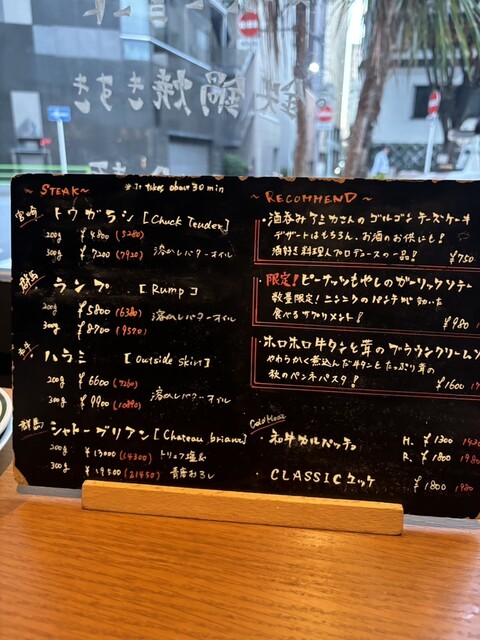 鍋焼きすき
~ STEAK ~
※ It takes about 30 min
宮崎 トウガラシ [Chuck Tender]
200g ¥4800 (5280)
300g ¥7200 (7920) 溶かしバターオイル
群馬 ランプ [Rump]
200g ¥5800 (6380)
300g ¥8700 (9570) 溶かしバターオイル
ハラミ [Outside skin]
200g ¥6600 (7260)
300g ¥9900 (10890) 溶かしバターオイル
群馬 シャトーブリアン [Chateau briand]
200g ¥13000 (14300) トリュフ塩
300g ¥19500 (21450) 青唐おろし
~ RECOMMEND ~
・酒呑みケミカさんのゴルゴンチーズケーキ
デザートはもちろん、お酒のお供にも!
酒好き料理人プロデュースの一品! ¥750
・限定! ピーナッツもやしのガーリックソテー
数量限定! ニンニクのパンチが効いた
食べるサプリメント! ¥980
・ホロホロ牛タンと茸のブラウンクリームソ
やわらかく煮込んだ牛タンとたっぷり茸の
秋のペンネパスタ! ¥1600
Cold Meat
・和牛カルパッチョ H. ¥1300
R. ¥1800 1980
・CLASSICユッケ ¥1800 1980